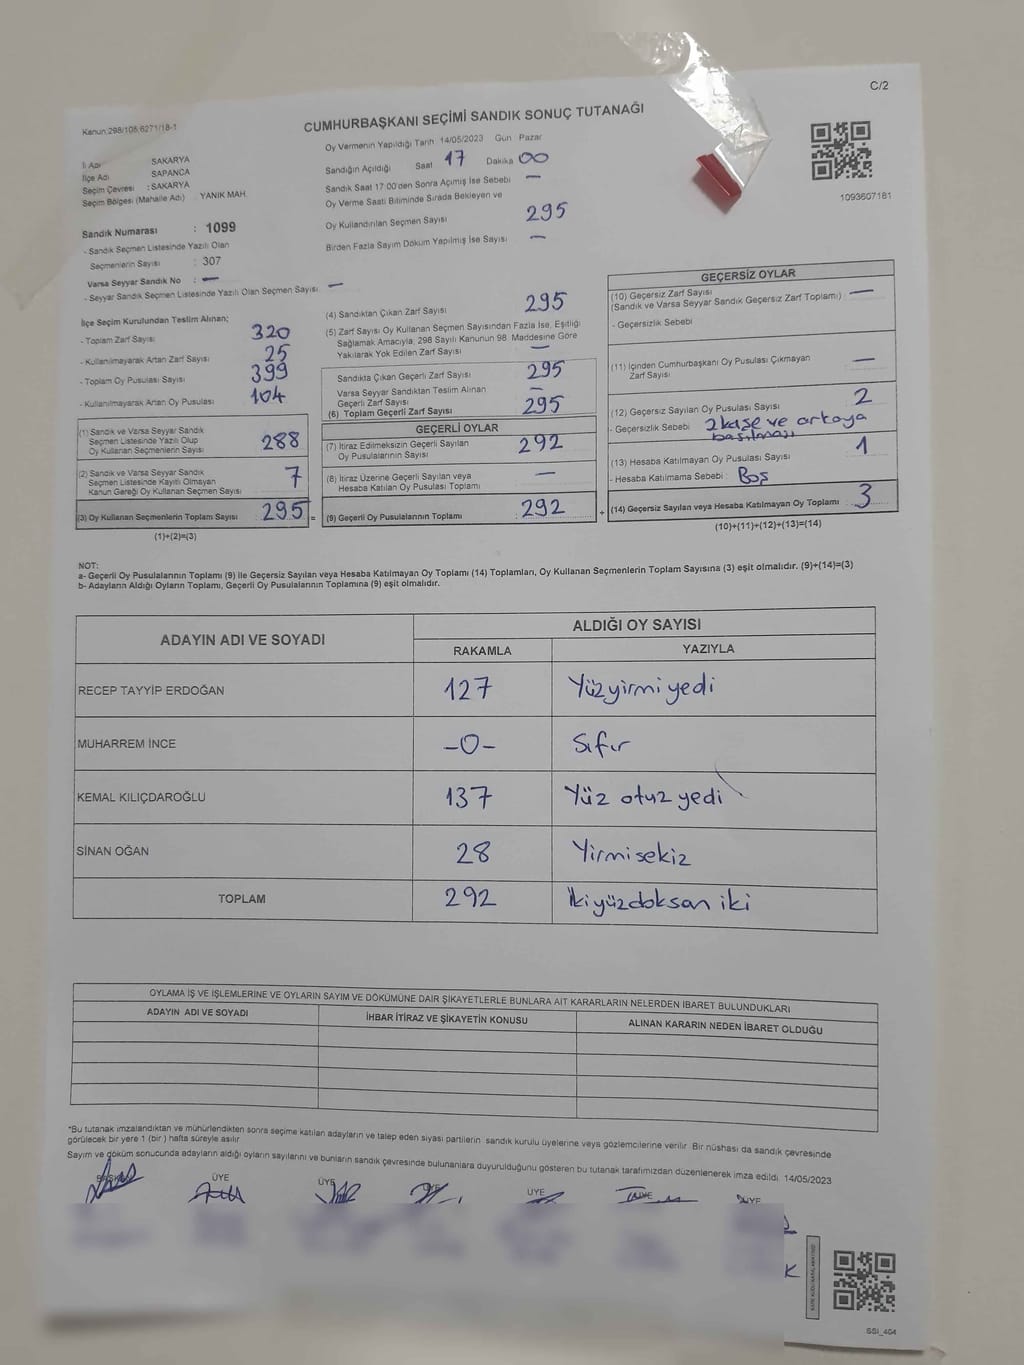 C/2
Kanun 298/106:6271/18-1
CUMHURBAŞKANI SEÇİMİ SANDIK SONUÇ TUTANAĞI
İl Adı SAKARYA
İlçe Adı SAPANCA
Seçim Çevresi : SAKARYA
Seçim Bölgesi (Mahalle Adı) : YANIK MAH.
Sandık Numarası : 1099
- Sandık Seçmen Listesinde Yazılı Olan
Seçmenlerin Sayısı : 307
Varsa Seyyar Sandık No : —
- Seyyar Sandık Seçmen Listesinde Yazılı Olan Seçmen Sayısı —
Oy Vermenin Yapıldığı Tarih 14/05/2023 Gün Pazar
Sandığın Açıldığı Saat 17 Dakika 00
Sandık Saat 17:00'den Sonra Açımış İse Sebebi —
Oy Verme Saati Bitiminde Sırada Bekleyen ve
Oy Kullandırılan Seçmen Sayısı 295
Birden Fazla Sayım Döküm Yapılmış İse Sayısı —
1093607181
İlçe Seçim Kurulundan Teslim Alınan;
- Toplam Zarf Sayısı 320
- Kullanılmayarak Artan Zarf Sayısı 25
- Toplam Oy Pusulası Sayısı 399
- Kullanılmayarak Artan Oy Pusulası 104
(1) Sandık ve Varsa Seyyar Sandık
Seçmen Listesinde Yazılı Olup
Oy Kullanan Seçmenlerin Sayısı 288
(2) Sandık ve Varsa Seyyar Sandık
Seçmen Listesinde Kayıtlı Olmayan
Kanun Gereği Oy Kullanan Seçmen Sayısı 7
(3) Oy Kullanan Seçmenlerin Toplam Sayısı 295 =
(1)+(2)=(3)
(4) Sandıktan Çıkan Zarf Sayısı 295
(5) Zarf Sayısı Oy Kullanan Seçmen Sayısından Fazla İse, Eşitliği
Sağlamak Amacıyla, 298 Sayılı Kanunun 98. Maddesine Göre
Yakılarak Yok Edilen Zarf Sayısı —
Sandıkta Çıkan Geçerli Zarf Sayısı 295
Varsa Seyyar Sandıktan Teslim Alınan
Geçerli Zarf Sayısı —
(6) Toplam Geçerli Zarf Sayısı 295
GEÇERLİ OYLAR
(7) İtiraz Edilmeksizin Geçerli Sayılan
Oy Pusulalarının Sayısı 292
(8) İtiraz Üzerine Geçerli Sayılan veya
Hesaba Katılan Oy Pusulası Toplamı —
(9) Geçerli Oy Pusulalarının Toplamı : 292 +
GEÇERSİZ OYLAR
(10) Geçersiz Zarf Sayısı
(Sandık ve Varsa Seyyar Sandık Geçersiz Zarf Toplamı) —
- Geçersizlik Sebebi
(11) İçinden Cumhurbaşkanı Oy Pusulası Çıkmayan
Zarf Sayısı —
(12) Geçersiz Sayılan Oy Pusulası Sayısı 2
- Geçersizlik Sebebi 2 kaşe ve ortaya
basılması
(13) Hesaba Katılmayan Oy Pusulası Sayısı 1
- Hesaba Katılmama Sebebi : Boş
(14) Geçersiz Sayılan veya Hesaba Katılmayan Oy Toplamı 3
(10)+(11)+(12)+(13)=(14)
NOT:
a- Geçerli Oy Pusulalarının Toplamı (9) ile Geçersiz Sayılan veya Hesaba Katılmayan Oy Toplamı (14) Toplamları, Oy Kullanan Seçmenlerin Toplam Sayısına (3) eşit olmalıdır. (9)+(14)=(3)
b- Adayların Aldığı Oyların Toplamı, Geçerli Oy Pusulalarının Toplamına (9) eşit olmalıdır.
ADAYIN ADI VE SOYADI
ALDIĞI OY SAYISI
RAKAMLA YAZIYLA
RECEP TAYYİP ERDOĞAN 127 Yüzyirmiyedi
MUHARREM İNCE -0- Sıfır
KEMAL KILIÇDAROĞLU 137 Yüz otuz yedi
SİNAN OĞAN 28 Yirmisekiz
TOPLAM 292 İkiyüzdoksan iki
OYLAMA İŞ VE İŞLEMLERİNE VE OYLARIN SAYIM VE DÖKÜMÜNE DAİR ŞİKAYETLERLE BUNLARA AİT KARARLARIN NELERDEN İBARET BULUNDUKLARI
ADAYIN ADI VE SOYADI İHBAR İTİRAZ VE ŞİKAYETİN KONUSU ALINAN KARARIN NEDEN İBARET OLDUĞU
*Bu tutanak imzalandıktan ve mühürlendikten sonra seçime katılan adayların ve talep eden siyasi partilerin sandık kurulu üyelerine veya gözlemcilerine verilir. Bir nüshası da sandık çevresinde
görülecek bir yere 1 (bir) hafta süreyle asılır
Sayım ve döküm sonucunda adayların aldığı oyların sayılarını ve bunların sandık çevresinde bulunanlara duyurulduğunu gösteren bu tutanak tarafımızdan düzenlenerek imza edildi. 14/05/2023
BAŞKAN ÜYE ÜYE ÜYE ÜYE ÜYE ÜYE
K
SSI_404